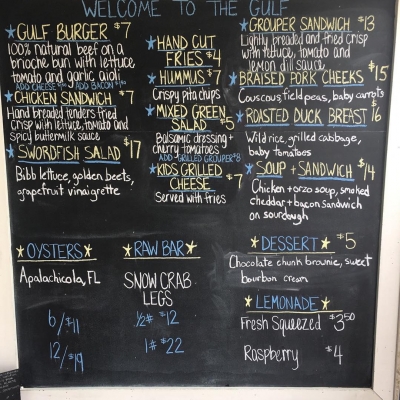 WELCOME TO THE GULF
GULF BURGER $7
100% natural beef on a
brioche bun with lettuce,
tomato and garlic aioli
CHICKEN SANDWICH $7
Hand breaded tenders fried
crisp with lettuce, tomato and
spicy buttermilk sauce
SWORDFISH SALAD $17
Bibb lettuce, golden beets,
grapefruit vinaigrette
HAND CUT
FRIES $4
HUMMUS $7
Crispy pita chips
MIXED GREEN
SALAD $5
Balsamic dressing +
cherry tomatoes
ADD GRILLED GROUPER $8
KIDS GRILLED
CHEESE $7
Served with fries
GROUPER SANDWICH $13
Lightly breaded and fried crisp
with lettuce, tomato and
lemon dill sauce
BRAISED PORK CHEEKS $15
Couscous, field peas, baby carrots
ROASTED DUCK BREAST $16
Wild rice, grilled cabbage,
baby tomatoes
SOUP + SANDWICH $14
Chicken + orzo soup, smoked
cheddar + bacon sandwich
on sourdough
OYSTERS
Apalachicola, FL
6/$11
12/$19
RAW BAR
SNOW CRAB
LEGS
½# $12
1# $22
DESSERT $5
Chocolate chunk brownie, sweet
bourbon cream
LEMONADE
Fresh Squeezed $3.50
Raspberry $4